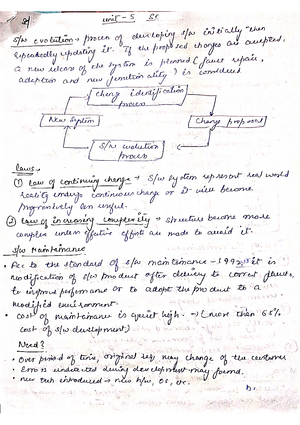 unit - 5 SE
S/w evolution → process of developing S/w initially then
repeatedly updating it. If the proposed changes are accepted,
a new release of the system is planned (fault repair,
adaption and new functionality) is considered
Change identification
process
New System
Change proposal
S/w evolution
process
Laws -
① Law of continuing change → S/w system represent real world
reality undergo continuous change or it will become
progressively less useful.
② Law of increasing complexity → Structure become more
complex unless effective effort are made to avoid it.
S/w Maintenance
Acc to the standard of S/w maintenance - 1993, it is
modification of S/w product after delivery to correct faults,
to improve performance or to adopt the product to a
modified environment.
• Cost of maintenance is quiet high. → (more than 65%
cost of S/w development)
Need?
• Over period of time, original req may change of the customer
• Errors undetected during development may found.
• new tech introduced → new h/w, OS, etc.